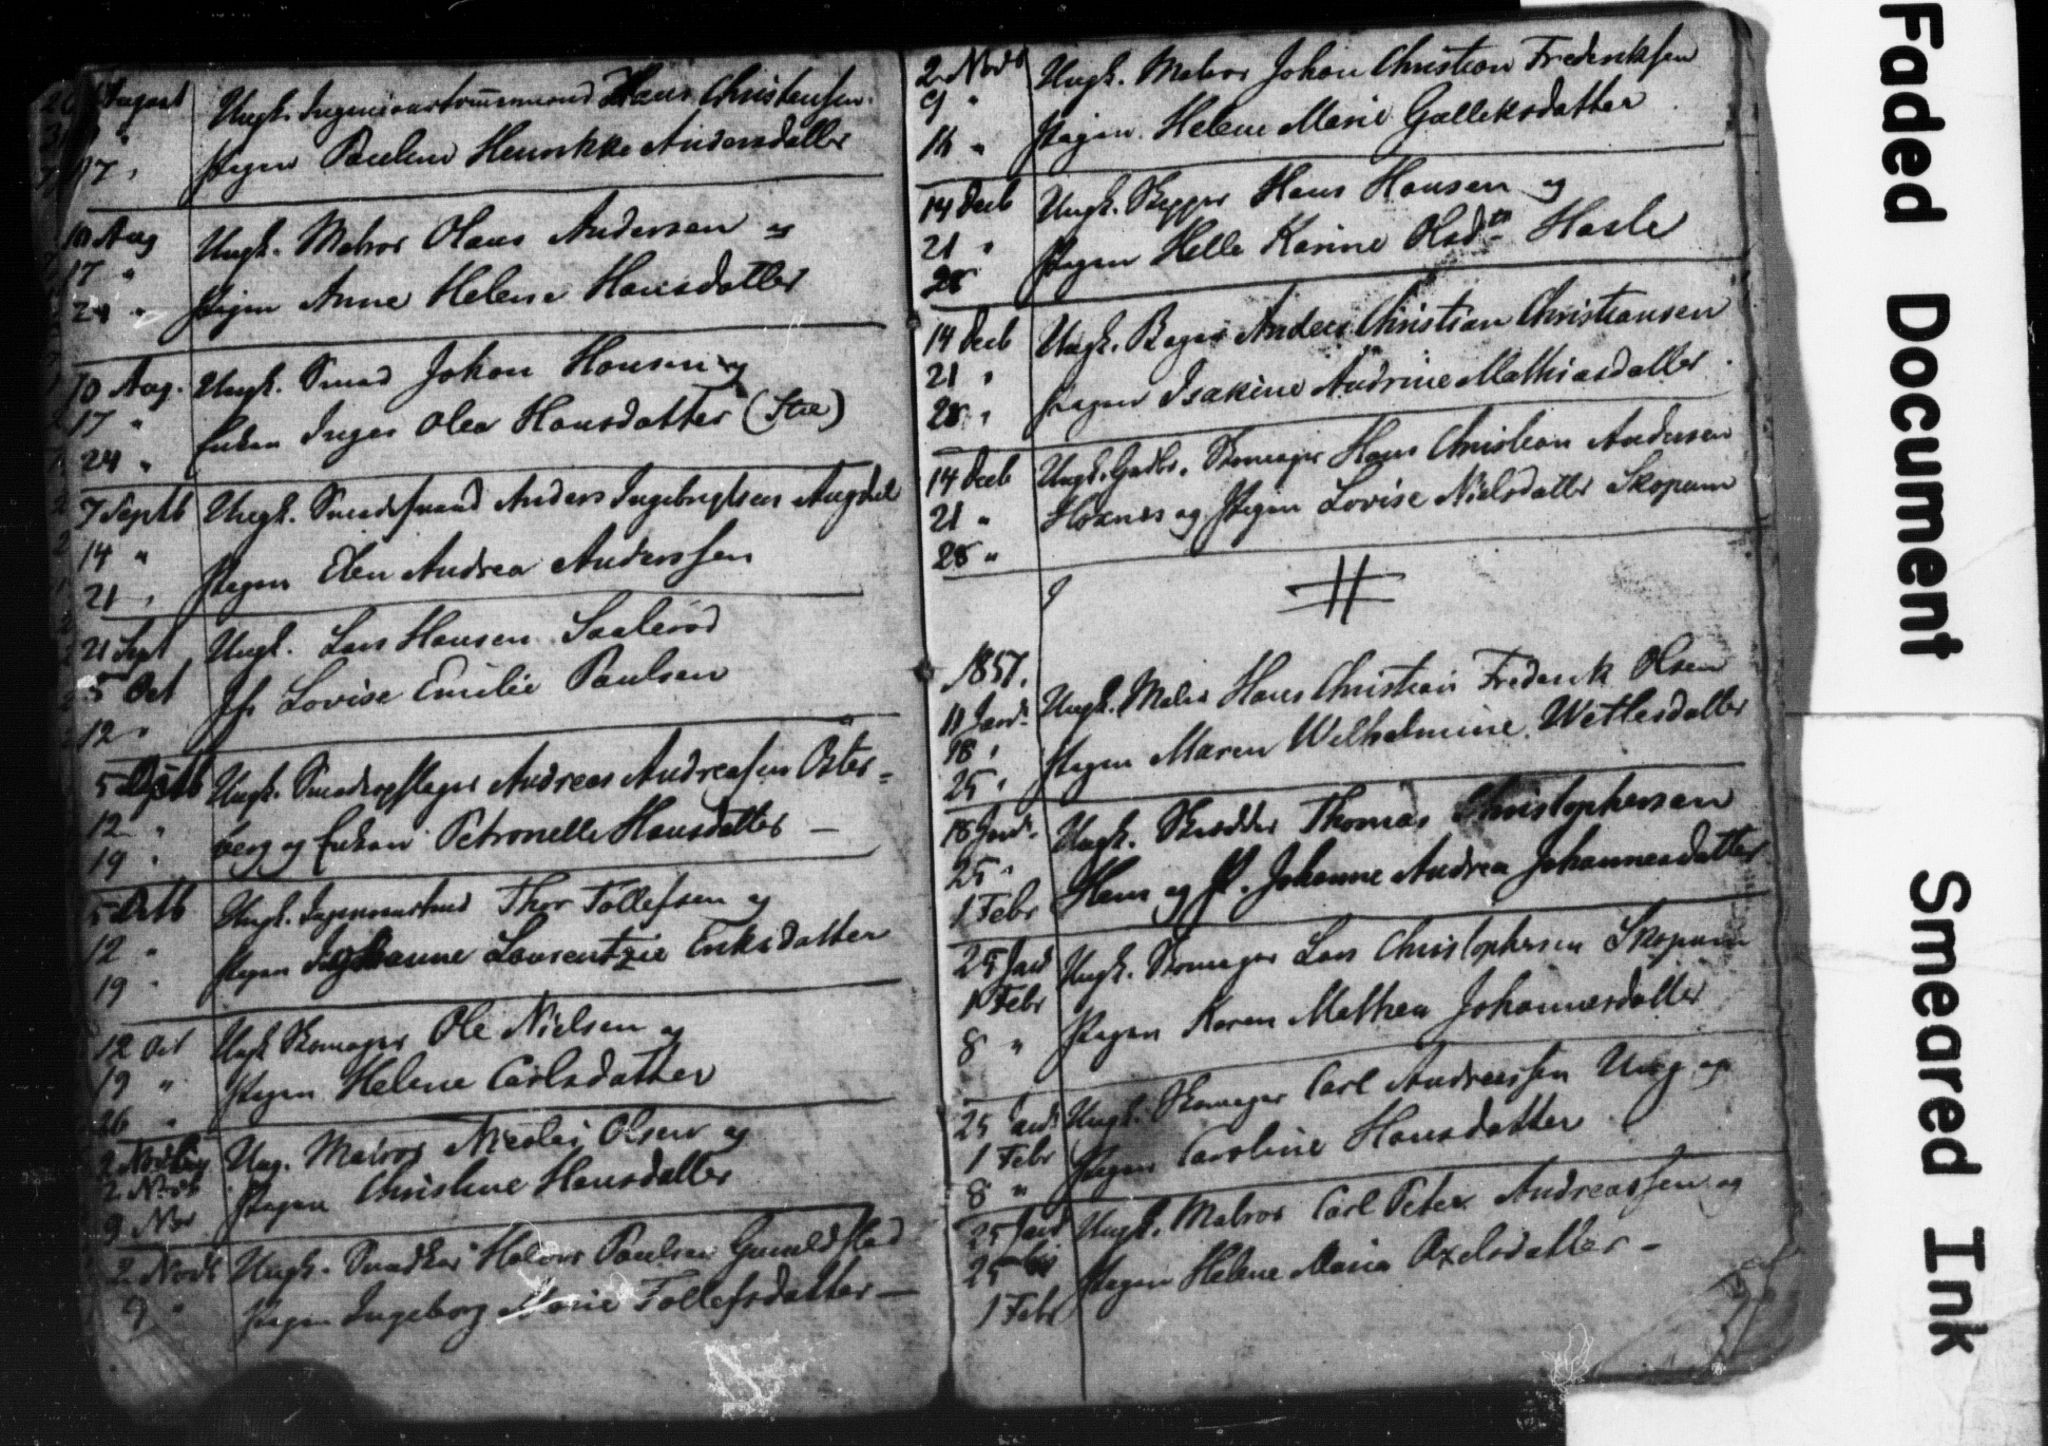 August Ungk. Hans Christensen.
17 " Pigen Pauline Henrikke Andersdatter
10 Aug Ungk. Matros Olaus Andersen og
17 "
24 " Pigen Anne Helene Hansdatter
10 Aug. Ungk. Smed Johan Hansen og
17 " Enken Inger Olea Hansdatter
24 "
7 Septb Ungk. Anders Ingebrigtsen
14 "
21 " Pigen Elen Andrea Anderssen
21 Sept Ungk. Lars Hansen Saalerød
5 Oct Jfr Lovise Emilie Paulsen
12 "
5 Octb Ungk. Andreas Andreasen Öster=
12 " berg og Enken Petronelle Hansdatter —
19 "
5 Octb Ungk. Thor Tollefsen og
12 " Pigen Johanne Laurentzie Eriksdatter
19 "
12 Oct Ungk Skomager Ole Nielsen og
19 " Pigen Helene Carlsdatter
26 "
2 Novb Ung. Matros Nicolai Olsen og
9 Nov Pigen Christine Hansdatter
2 Novb Ungk. Halvor Paulsen
9 " Pigen Ingeborg Marie Tollefsdatter —
2 Novb Ungk. Matros Johan Christian Frederiksen
9 "
16 " Pigen Helene Marie
14 Decb Ungk. Skipper Hans Hansen og
21 " Pigen Helle Karine Olsdtr Hasle
28
14 Decb Ungk. Bager Anders Christian Christiansen
21 "
28 " Pigen Isakine Andrine Mathiasdatter
14 Decb Ungk. Skomager Hans Christian Andersen
21 " og Pigen Lovise Nielsdatter Skopum
28 "
1857.
11 Jand. Ungk. Maler Hans Christian Frederik Olsen
18 "
25 " Pigen Maren Wilhelmine Wetlesdatter
18 Jand. Ungk. Skrædder Thomas Christophersen
25 "
1 Febr Hem og P. Johanne Andrea Johannesdatter
25 Jand Ungk. Skomager Lars Christophersen Skopum
1 Febr
8 " Pigen Karen Mathea Johannesdatter
25 Jand Ungk. Skomager Carl Andreassen Ung og
1 Febr
8 " Pigen Caroline Hansdatter
25 Jand Ungk. Matros Carl Peter Andreassen og
25
1 Febr Pigen Helene Maria Axelsdatter —
Faded Document
Smeared Ink